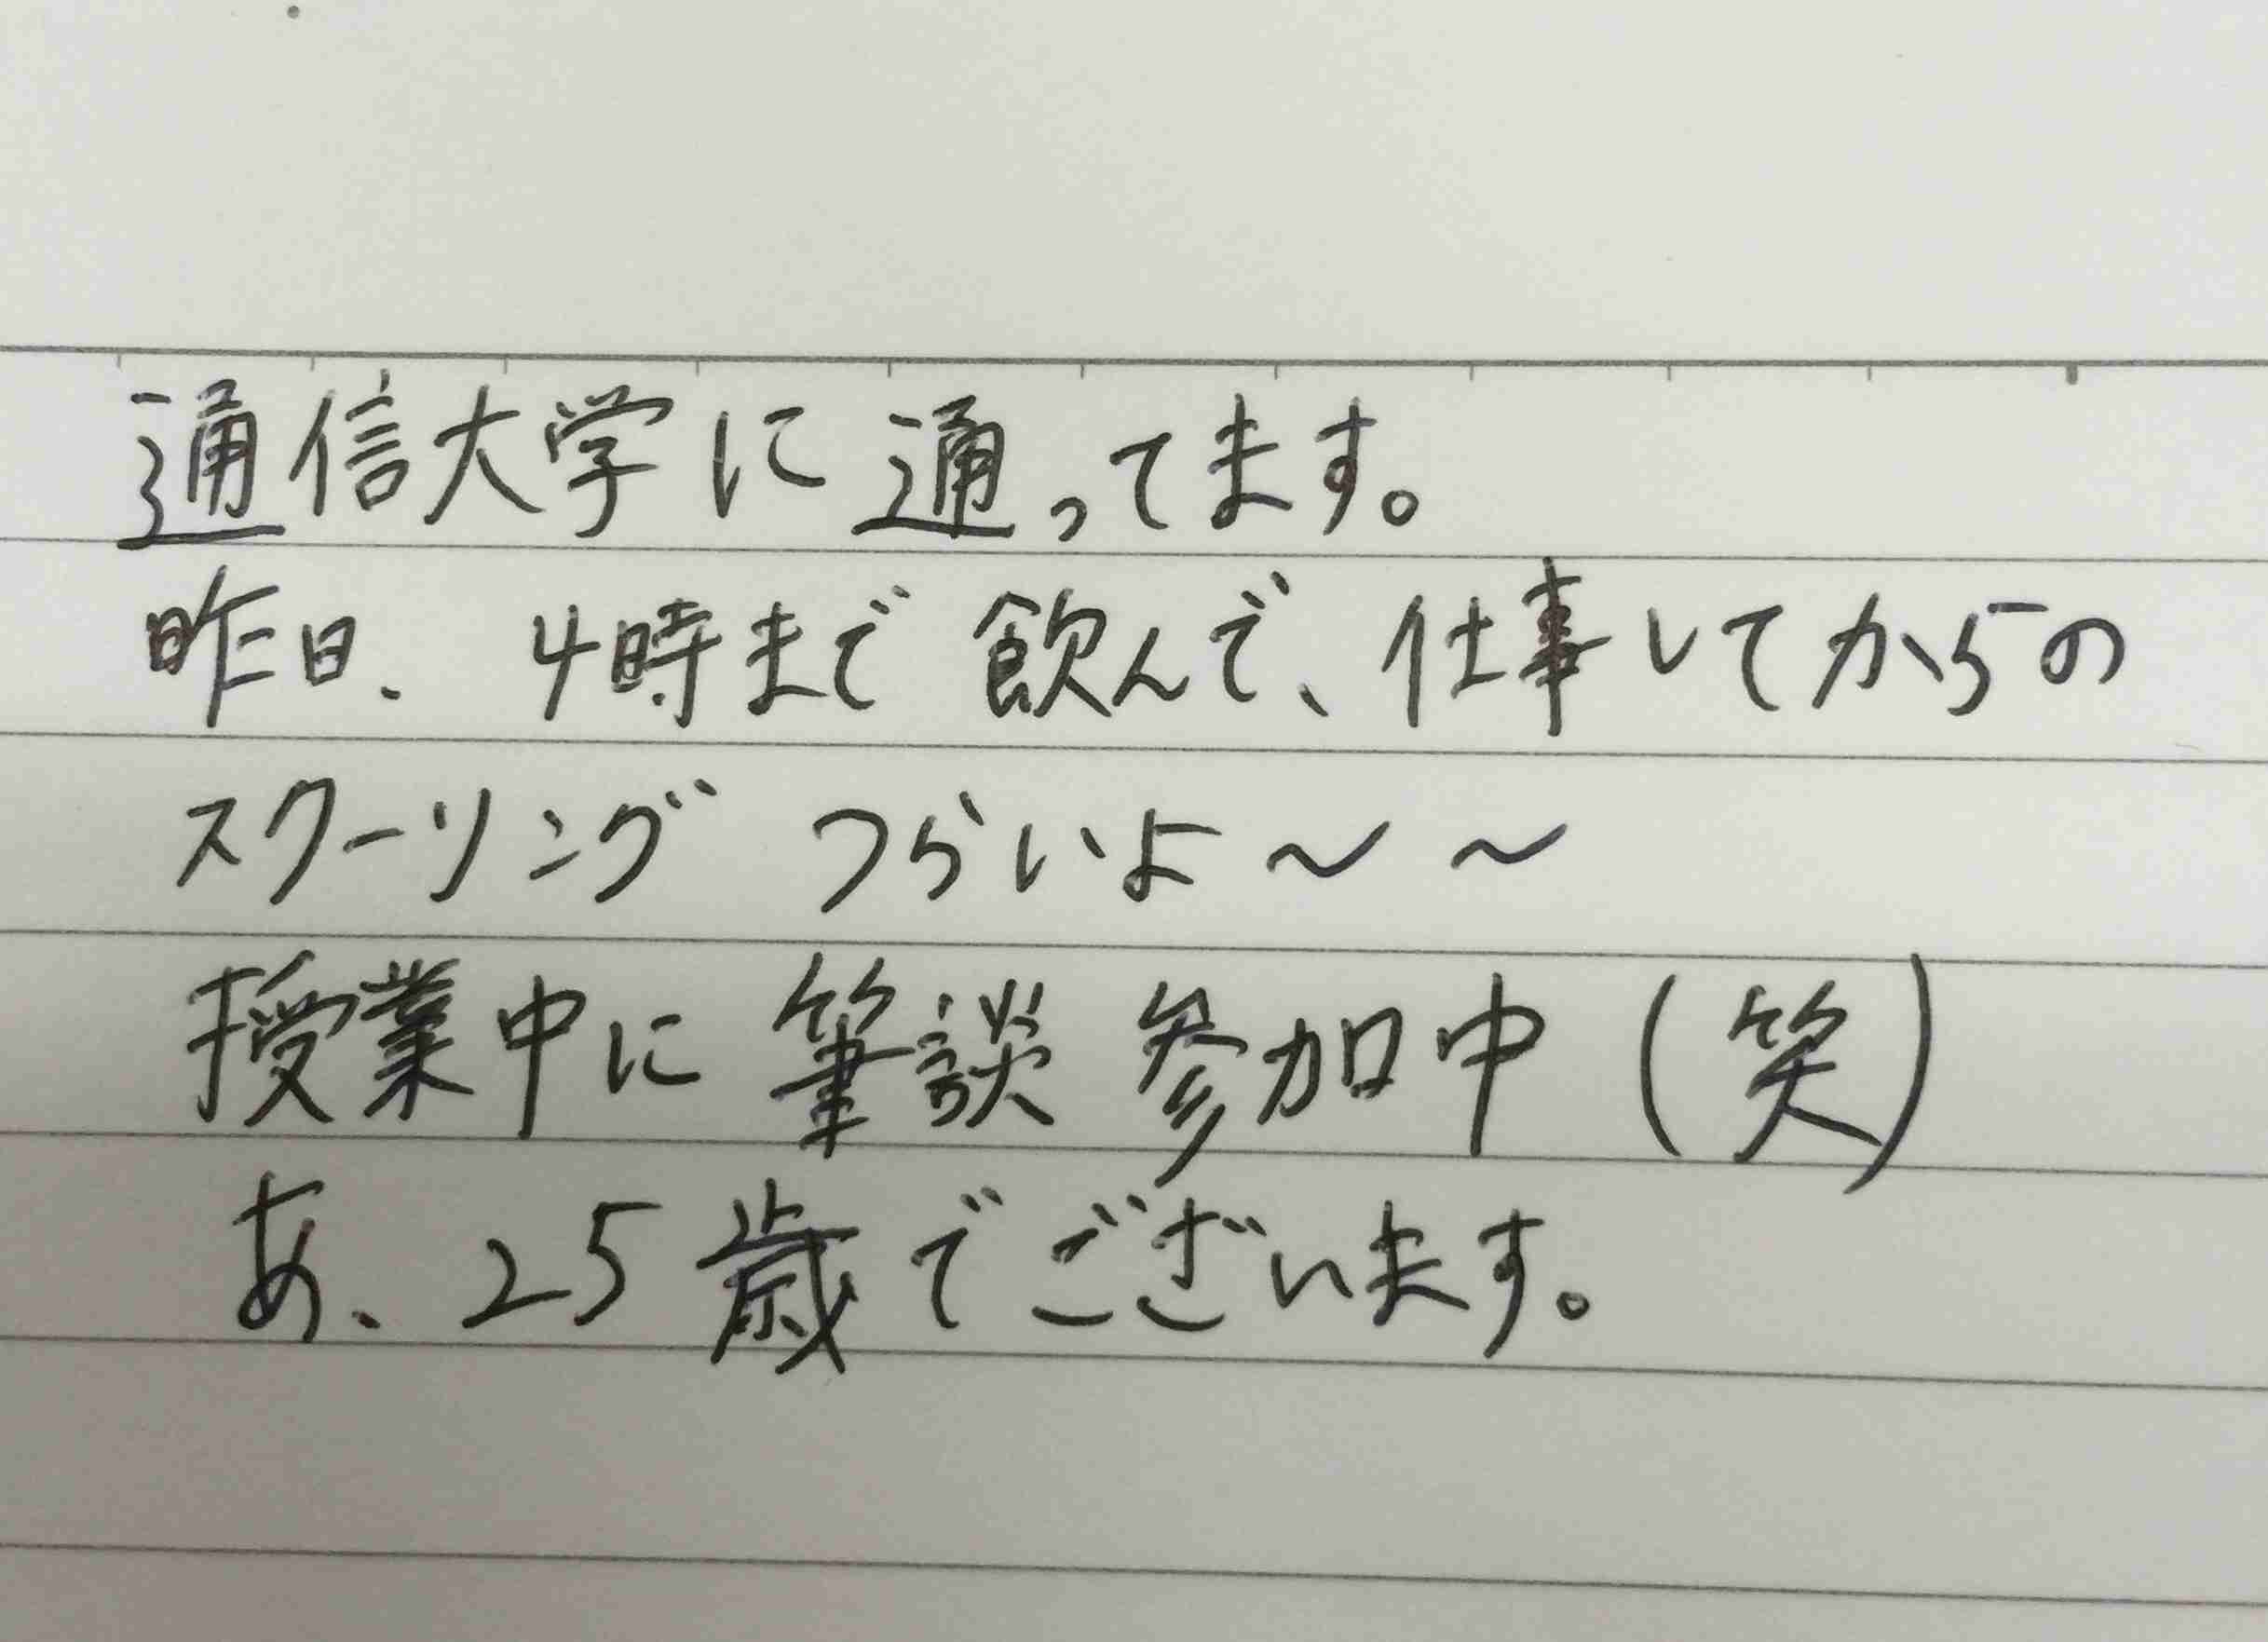 通信大学に通ってます。
昨日、4時まで飲んで、仕事してからの
スクーリング つらいよ～～
授業中に筆談参加中(笑)
あ、25歳でございます。